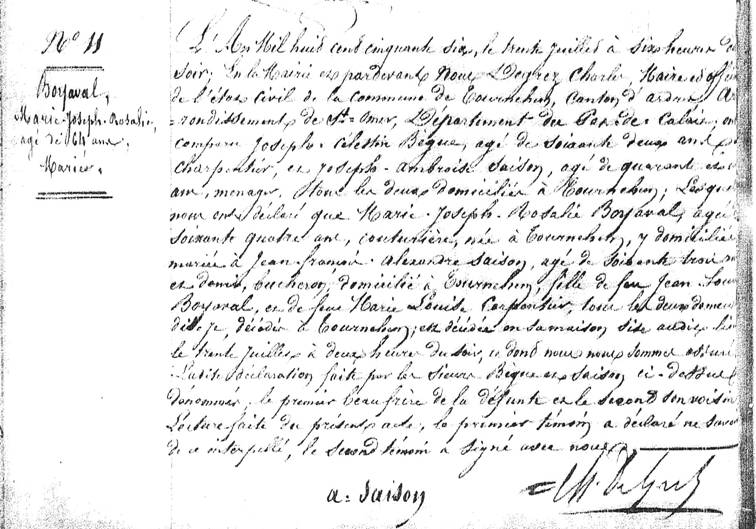 N° 11
Boyaval,
Marie-Joseph-Rosalie,
agé de 64 ans,
Mariée.
L'An Mil huid cend cinquante six, le trente Juilled à six heures du
soir; En la Mairie et pardevant Nous Degrez Charle, Maire et offi
de l'état Civil de la Commune de Tournehem, Canton d'ardres, Ar
=rondissement de St-Omer, Département du Pas-de-Calais; on
comparu Joseph-Célestin Bègue, agé de soixante deux ans
charpentier, et Joseph-Ambroise Saison, agé de quarante
ans, menager, tous les deux domiciliés à Tournehem; Lesque
nous ont déclaré que Marie-Joseph-Rosalie Boyaval, agée
soixante quatre ans, couturière, née à Tournehem, y domiciliée
mariée à Jean-françois-Alexandre Saison, agé de soixante trois
et demi, bucheron, domicilié à Tournehem, fille de feu Jean
Boyaval, et de feue Marie Louise Carpentier, tous les deux
décédés à Tournehem; est décédée en sa maison sise audit
le trente Juillet à deux heures du soir, ce dond nous nous sommes assuré
Ladite déclaration faite par les sieurs Bègue et Saison ci-dessus
dénommés, le premier beaufrère de la défunte et le second son voisin
Lecture faite du présent acte, le premier témoin a déclaré ne savoir
de ce interpellé, le second témoin a signé avec nous.
a. Saison